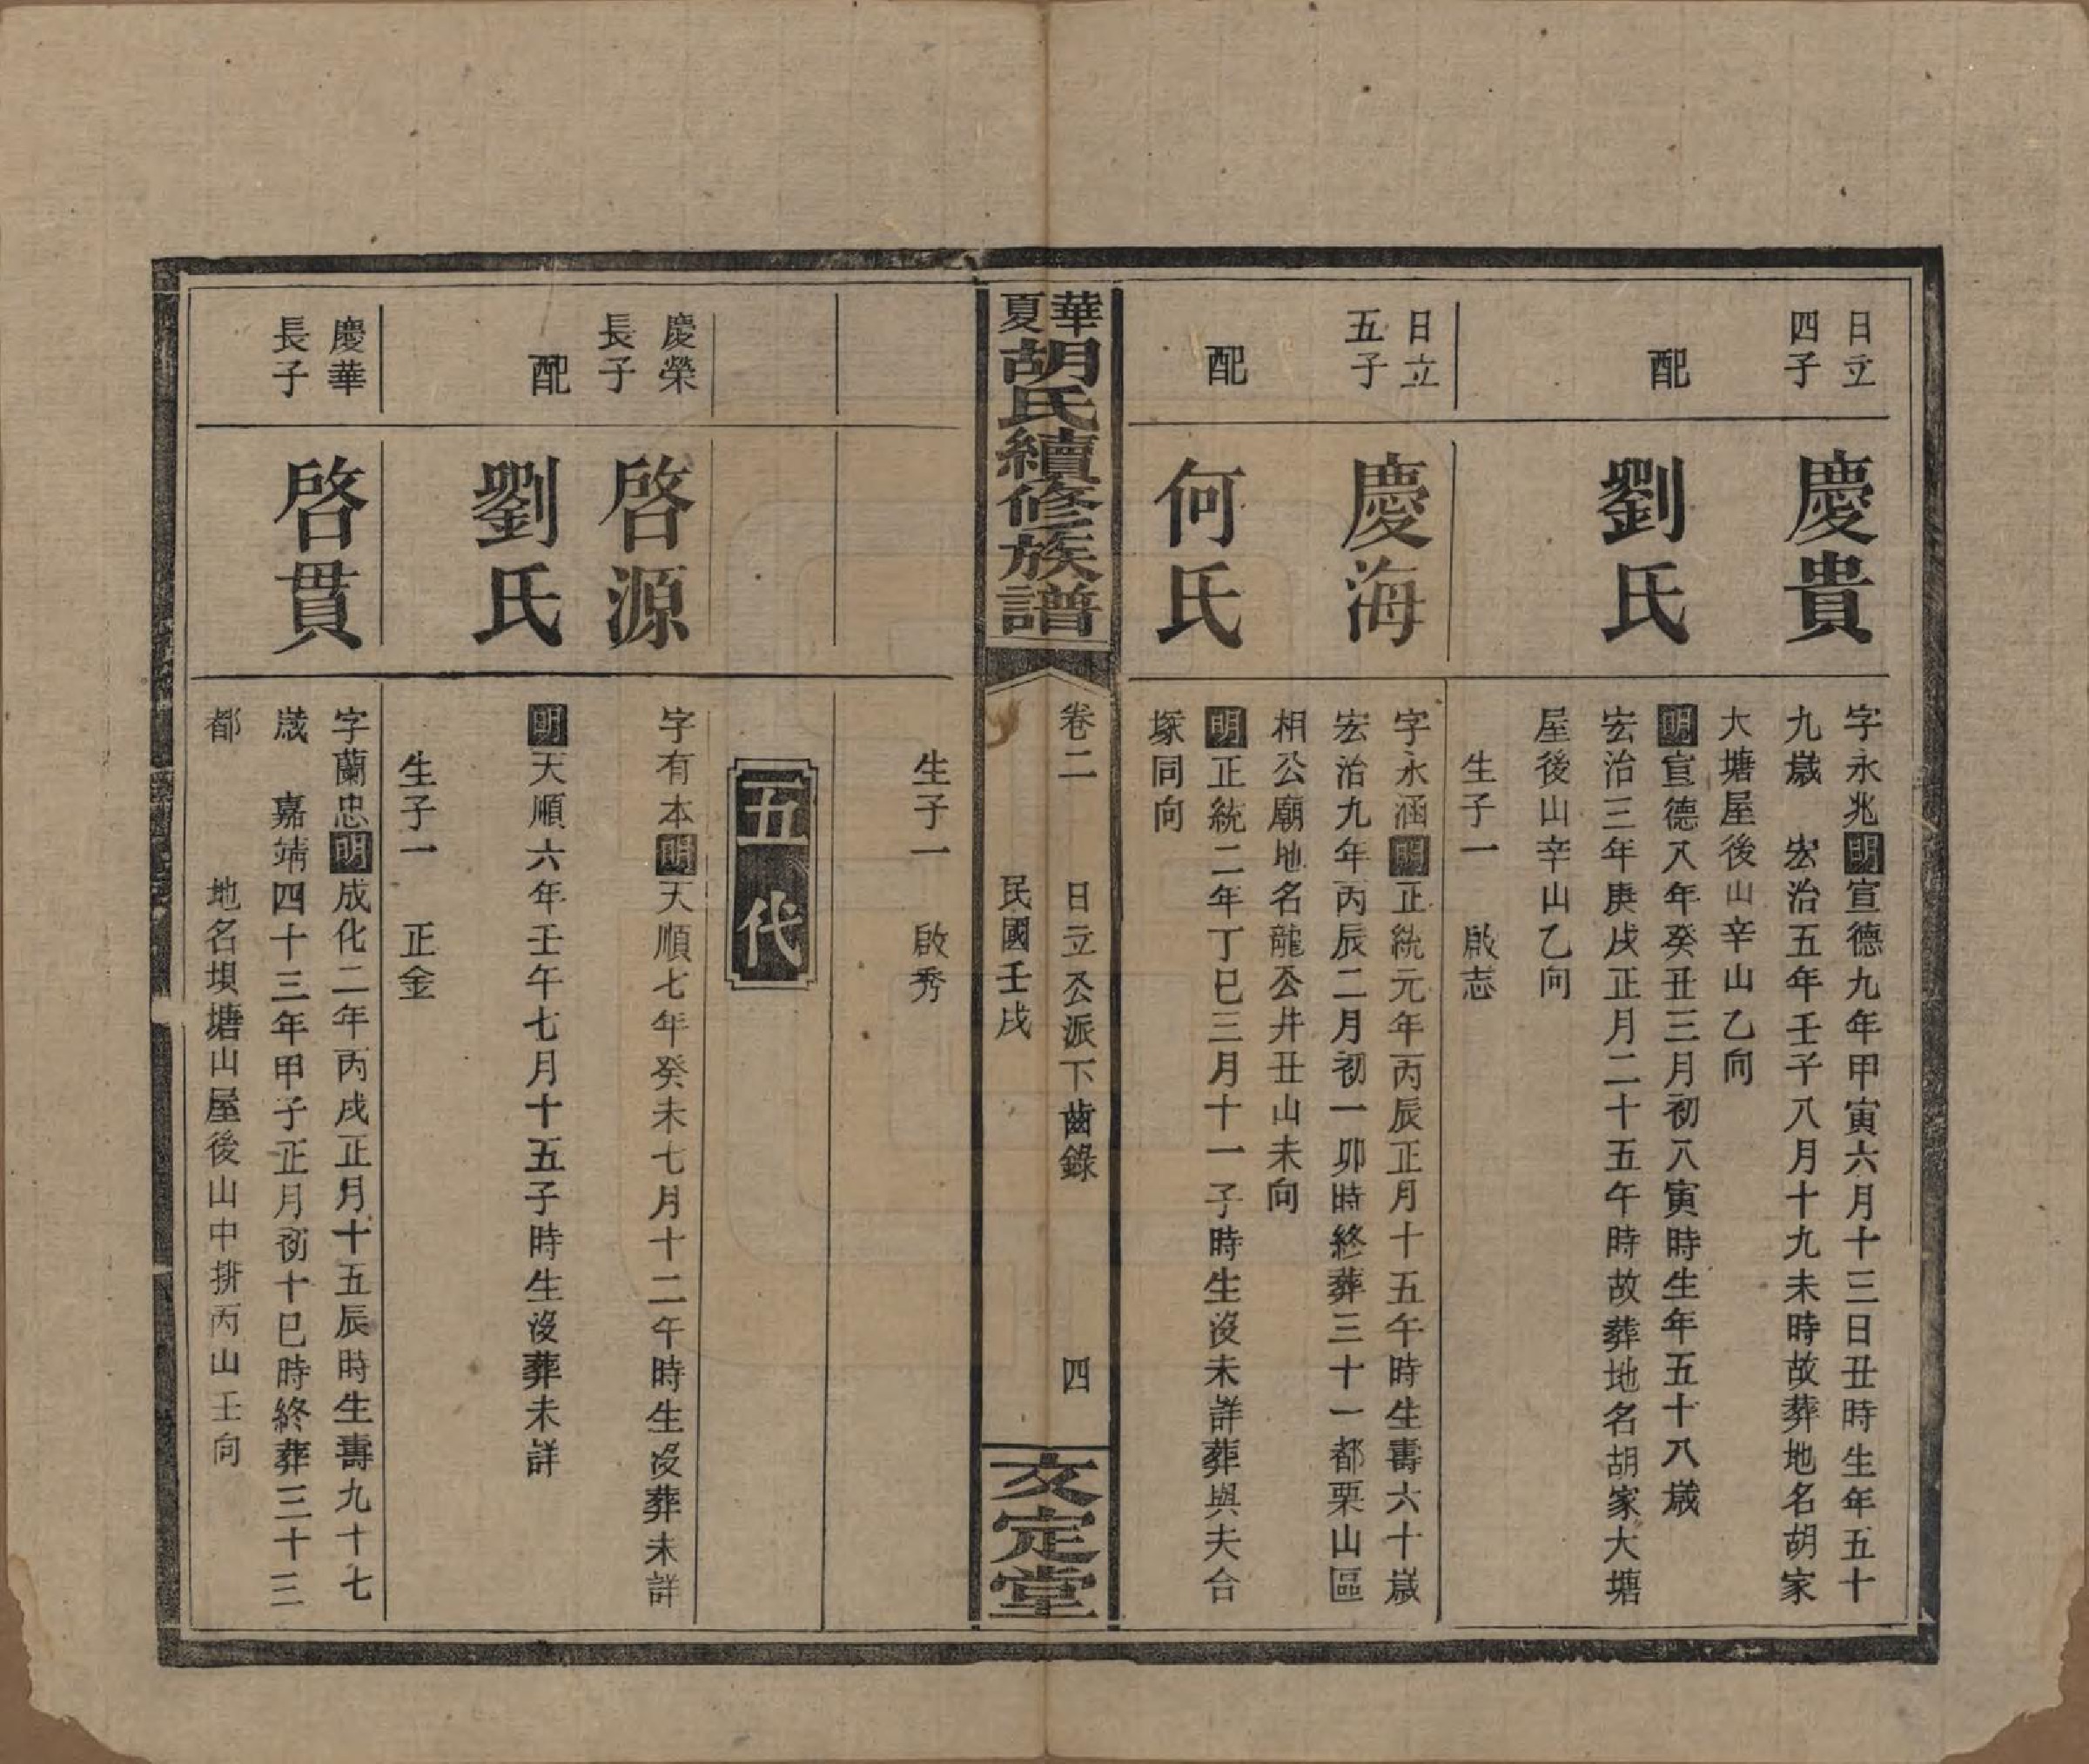 日立
四子
慶貴
字永兆明宣德九年甲寅六月十三日丑時生年五十
九歲　宏治五年壬子八月十九未時故葬地名胡家
大塘屋後山辛山乙向
配
劉氏
明宣德八年癸丑三月初八寅時生年五十八歲
宏治三年庚戌正月二十五午時故葬地名胡家大塘
屋後山辛山乙向
生子一　啟志
日立
五子
慶海
字永涵明正統元年丙辰正月十五午時生壽六十歲
宏治九年丙辰二月初一卯時終葬三十一都栗山區
相公廟地名龍公井丑山未向
配
何氏
明正統二年丁巳三月十一子時生沒未詳葬與夫合
塚同向
華夏胡氏續修族譜
卷二　日立公派下齒錄　四
民國壬戌
文定堂
生子一　啟秀
五代
慶榮
長子
啓源
字有本明天順七年癸未七月十二午時生沒葬未詳
配
劉氏
明天順六年壬午七月十五子時生沒葬未詳
生子一　正金
慶華
長子
啓貫
字蘭忠明成化二年丙戌正月十五辰時生壽九十七
歲　嘉靖四十三年甲子正月初十巳時終葬三十三
都　地名垻塘山屋後山中排丙山壬向